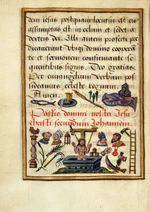 dem iesus postquam locutus est eis
assumptus est in celum et sedet a
dextris dei. Illi autem profecti pre
dicaverunt ubique domino cooperā
te et sermonem confirmante seque
tibus signis. Deo gratias.
Per euangelica
Amen.
Passio domini nostri Jesu
christi secundum Johannem.